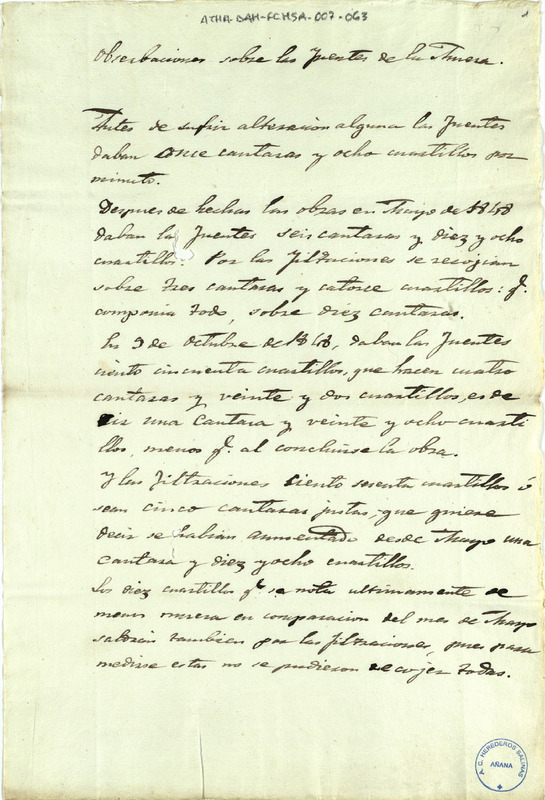 ATHA-DAH-FCHSA-007-063
1
Observaciones sobre las fuentes de la Muera.
Antes de sufrir alteracion alguna las fuentes
daban once cantaras y ocho cuartillos por
minuto.
Despues de hechas las obras en Mayo de 1848
daban las fuentes seis cantaras y diez y ocho
cuartillos. Por las filtraciones se recojian
sobre tres cantaras y catorce cuartillos: q.
componia todo, sobre diez cantaras.
En 9 de Octubre de 1848, daban las fuentes
ciento cincuenta cuartillos, que hacen cuatro
cantaras y veinte y dos cuartillos, es de
cir una cantara y veinte y ocho cuarti
llos, menos q. al concluirse la obra.
Y las filtraciones ciento sesenta cuartillos ó
sean cinco cantaras justas, que quiere
decir se habian aumentado desde Mayo una
cantara y diez y ocho cuartillos.
Los diez cuartillos q. se nota ultimamente de
menos muera en comparacion del mes de Mayo
saldrán tambien por las filtraciones, pues para
medirse estas no se pudieron recojer todas.
A.C. HEREDEROS SALINAS
AÑANA